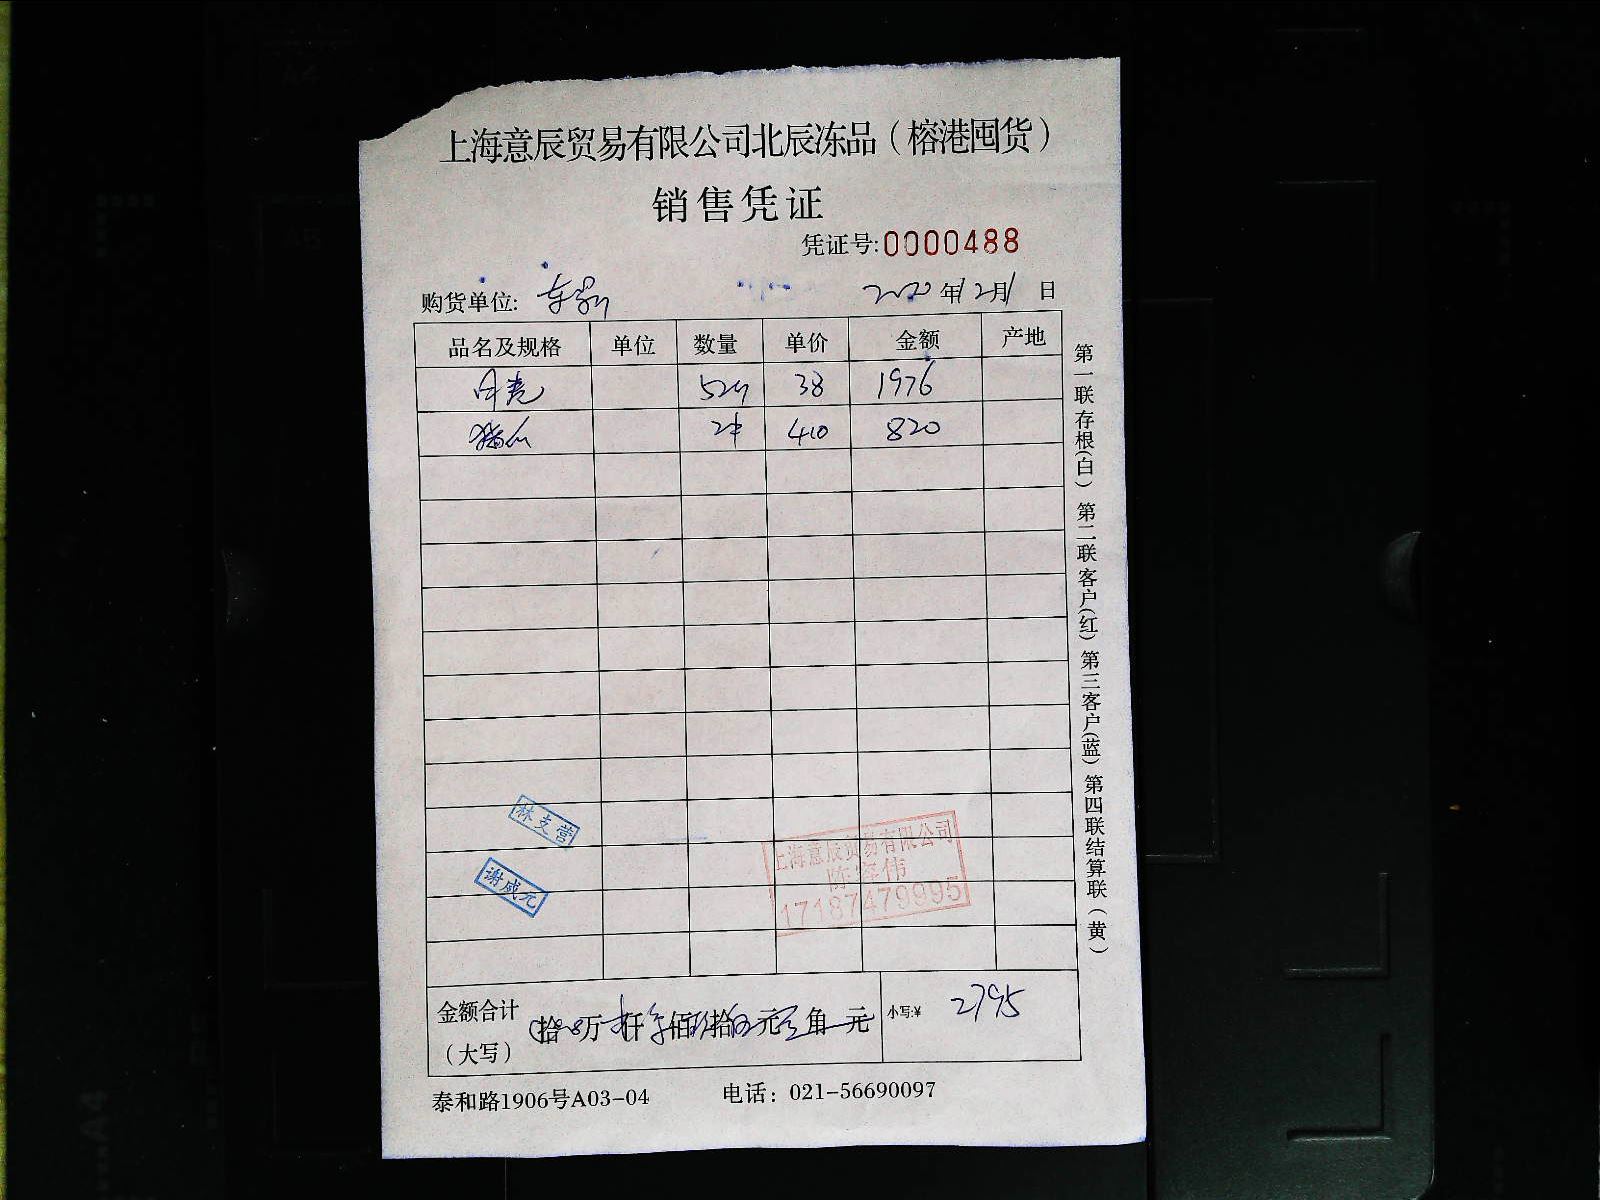 上海意辰贸易有限公司北辰冻品（榕港囤货）
销售凭证
凭证号:0000488
购货单位:
2020年12月1日
品名及规格 单位 数量 单价 金额 产地
52 38 1976
2件 410 820
林支营
谢咸元
上海意辰贸易有限公司
17187479995
金额合计（大写） 拾 万 仟 佰 拾 元 角 元 小写:¥ 2795
泰和路1906号A03-04 电话：021-56690097
第一联存根(白) 第二联客户(红) 第三客户(蓝) 第四联结算联（黄）